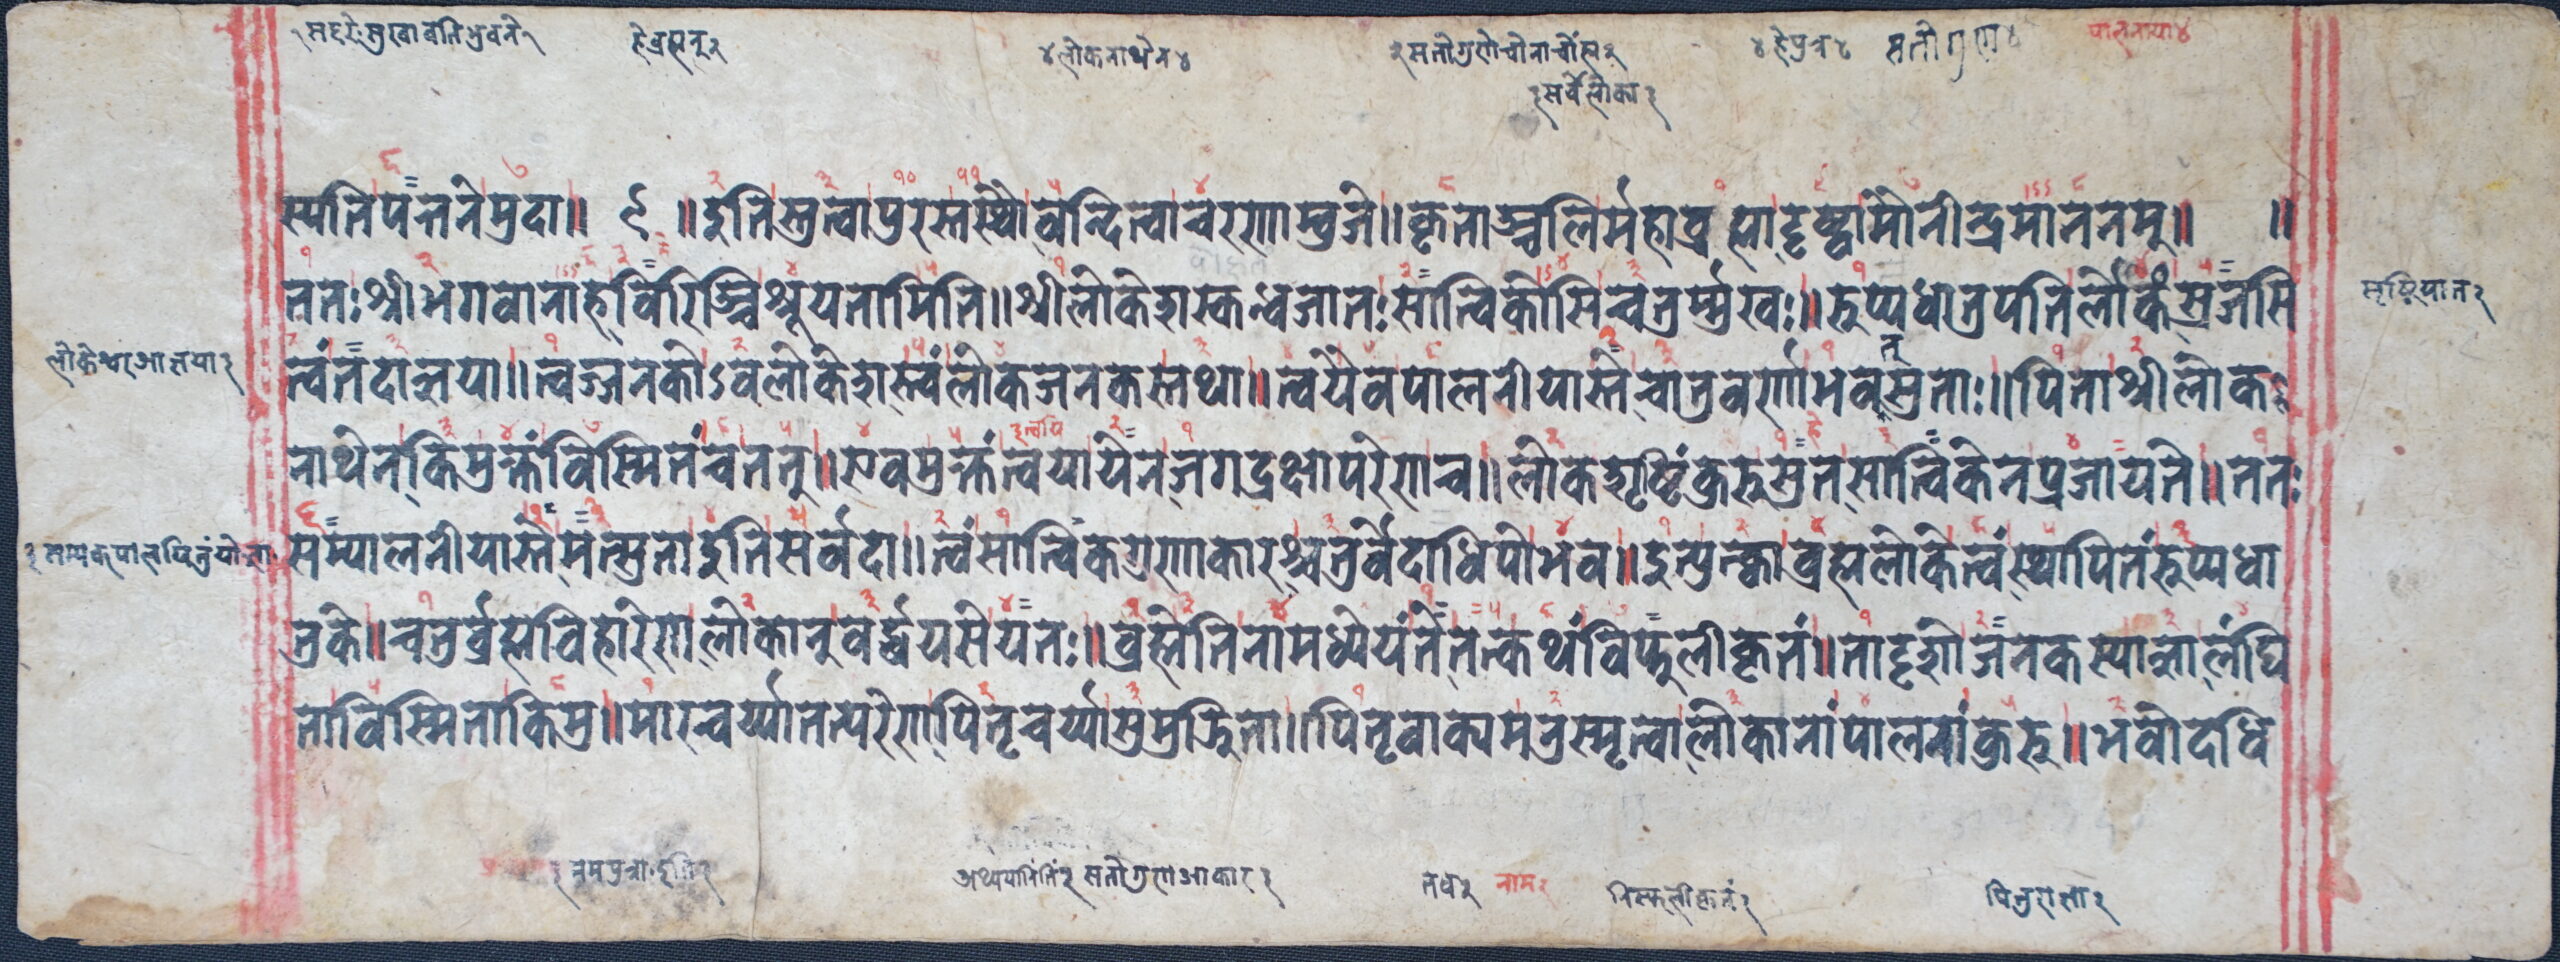 १ सदरेः सुखावतिभुवने १ हेब्रह्मन् २ ४ लोकनाथेन ४ २ सतोगुणोचीनाचींह्म २ ४ हेपुत्र ४ सतोगुण ४ पालनाया ४
३ सर्वेलोका ३
स्पतिपत्तनेमुदा॥ ६ ॥इतिस्तुत्वापुरस्तस्थौवन्दित्वाचरणाम्बुजे॥कृताञ्जलिर्महाब्रह्मादृष्ट्वामौनीन्द्रमाननम्॥ ॥
ततःश्रीभगवानाहविरिञ्चिश्रूयतामिति॥श्रीलोकेशस्कन्धजातःसात्त्विकोसिचतुर्म्मुखः॥रूप्यधातुपतिर्लोकंसृजसि
त्वंतदाज्ञया॥त्वज्जनकोऽवलोकेशस्त्वंलोकजनकस्तथा॥त्वयैवपालनीयास्तेचातुवर्णाभवत्सुताः॥पिताश्रीलोक
नाथेनकिमुक्तंविस्मितंचतत्॥एवमुक्तंत्वयायेनजगद्रक्षापरेणच॥लोकसृष्टिंकुरुसुतसात्त्विकेनप्रजायते॥ततः
सम्पालनीयास्तेमत्सुताइतिसर्वदा॥त्वंसात्त्विकगुणाकारश्चतुर्वेदाधिपोभव॥इत्युक्त्वाब्रह्मलोकेत्वंस्थापितंरूप्यधा
तुके॥चतुर्ब्रह्मविहारेणलोकानुवर्द्धयसेयतः॥ब्रह्मेतिनामधेयंतेतत्कथंविफ्लुलीकृतं॥तादृशोजनकस्याज्ञालंघि
ताविस्मिताकिमु॥मारचर्य्यातत्परेणपितृचर्य्यासुमुक्रिता॥पितृवाक्यमनुस्मृत्वालोकानांपालनांकुरु॥भवोदधि
सृष्टियात २
लोकेश्वरआज्ञया २
३ त्वपि
३ तुमपुत्राःइति २ सतोगुणआकार २ तव २ नाम २ निस्फलीकृतं २